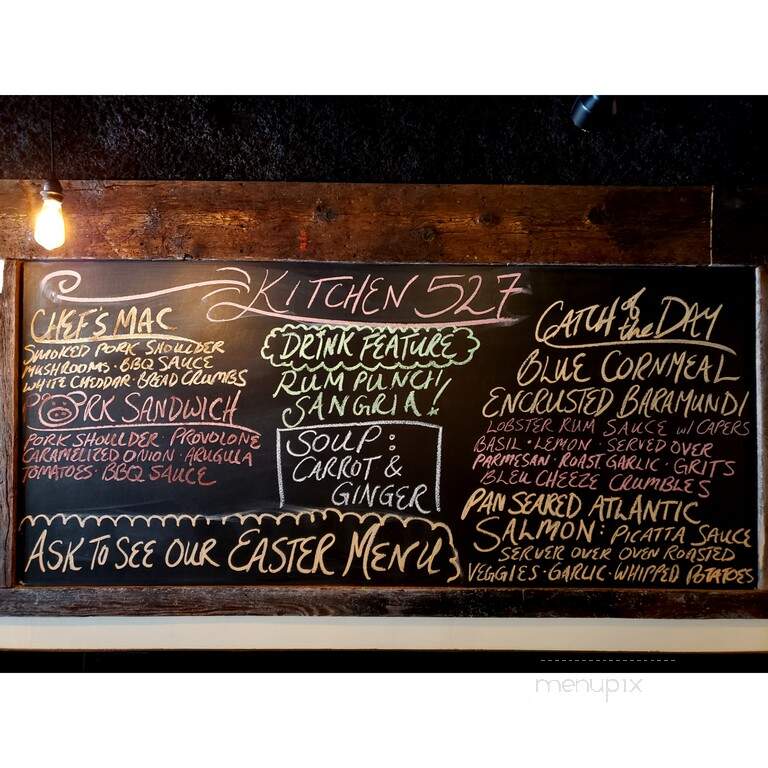 KITCHEN 527
CHEF'S MAC
SMOKED PORK SHOULDER
MUSHROOMS · BBQ SAUCE
WHITE CHEDDAR · BREAD CRUMBS
PORK SANDWICH
PORK SHOULDER · PROVOLONE
CARAMELIZED ONION · ARUGULA
TOMATOES · BBQ SAUCE
DRINK FEATURE
RUM PUNCH
SANGRIA!
SOUP:
CARROT &
GINGER
ASK TO SEE OUR EASTER MENU
CATCH of the DAY
BLUE CORNMEAL
ENCRUSTED BARAMUNDI
LOBSTER RUM SAUCE w/ CAPERS
BASIL · LEMON · SERVED OVER
PARMESAN · ROAST GARLIC · GRITS
BLEU CHEEZE CRUMBLES
PAN SEARED ATLANTIC
SALMON: PICATTA SAUCE
SERVER OVER OVEN ROASTED
VEGGIES · GARLIC · WHIPPED POTATOES
menupix